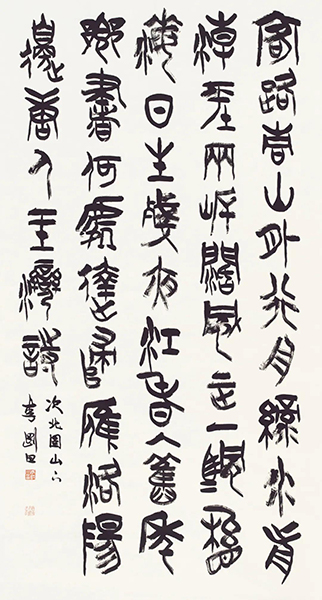 客路青山外行舟綠水前
潮平兩岸闊風正一帆懸
海日生殘夜江春入舊年
鄉書何處達歸雁洛陽
邊唐人王灣詩
次北固山下
李剛田